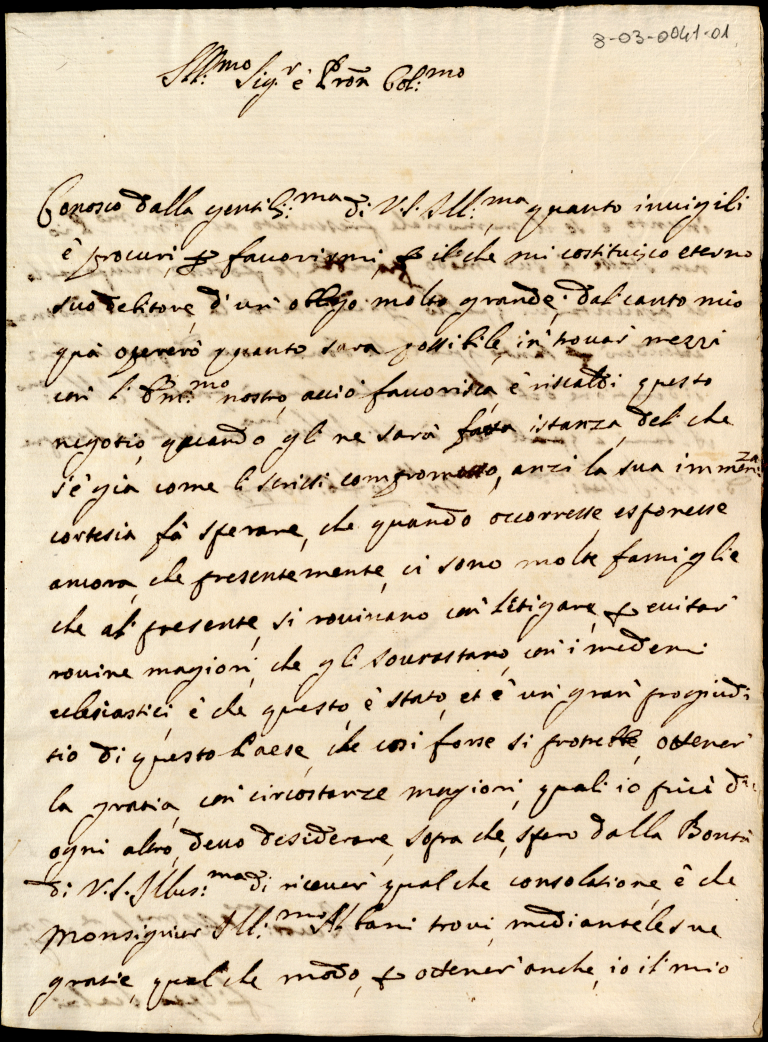 8-03-0041-01
Ill:mo Sig.r è Pron Col:mo
Conosco dalla gentil:ma di V.S. Ill:ma quanto invigili
è procuri, p favorirmi, p il che mi costituisco eterno
suo debitore, d'un obligo molto grande; dal canto mio
quà opererò quanto sara possibile, in trovar mezzi
con l'Em:mo nostro, acciò favorisca, è riscaldi questo
negotio, quando gli ne sarà fatta istanza, del che
s'è già come li scrissi compromesso, anzi la sua immen:za
cortesia fà sperare, che quando occorresse esponesse
ancora, che presentemente, ci sono molte famiglie
che al presente, si rovinano con litigare, p evitar
rovine magiori, che gli sovrastano, con i medemi
eclesiastici, è che questo, è stato, et è un gran progiudi-
tio di questo Paese, che cosi forse si potrebbe, ottener
la gratia, con circostanze magiori, quali io più d'
ogni altro, devo desiderare, sopra che, spero dalla Bontà
di V.S. Illus:ma di ricever qualche consolatione, è che
Monsignier Ill:mo Albani trovi, mediante le sue
gratie, qualche modo, p ottener anche, io il mio